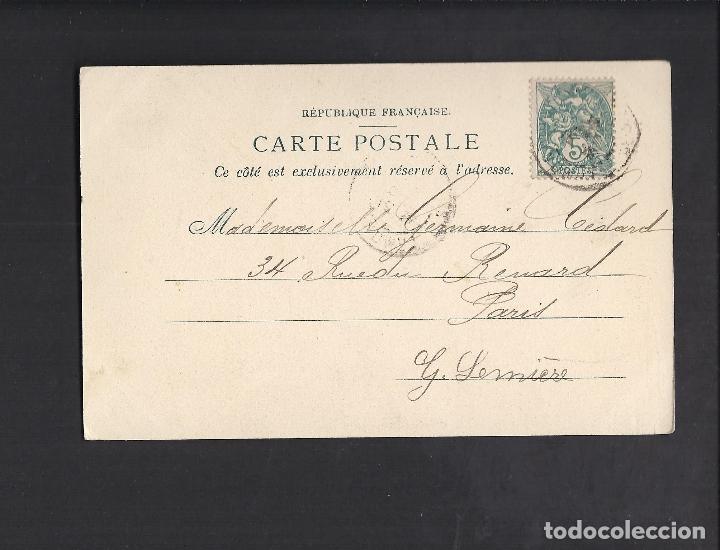 RÉPUBLIQUE FRANÇAISE.
CARTE POSTALE
Ce côté est exclusivement réservé à l'adresse.
5
POSTES
Mademoiselle Germaine
34 Rue du Renard
Paris
G. Lemière
todocoleccion